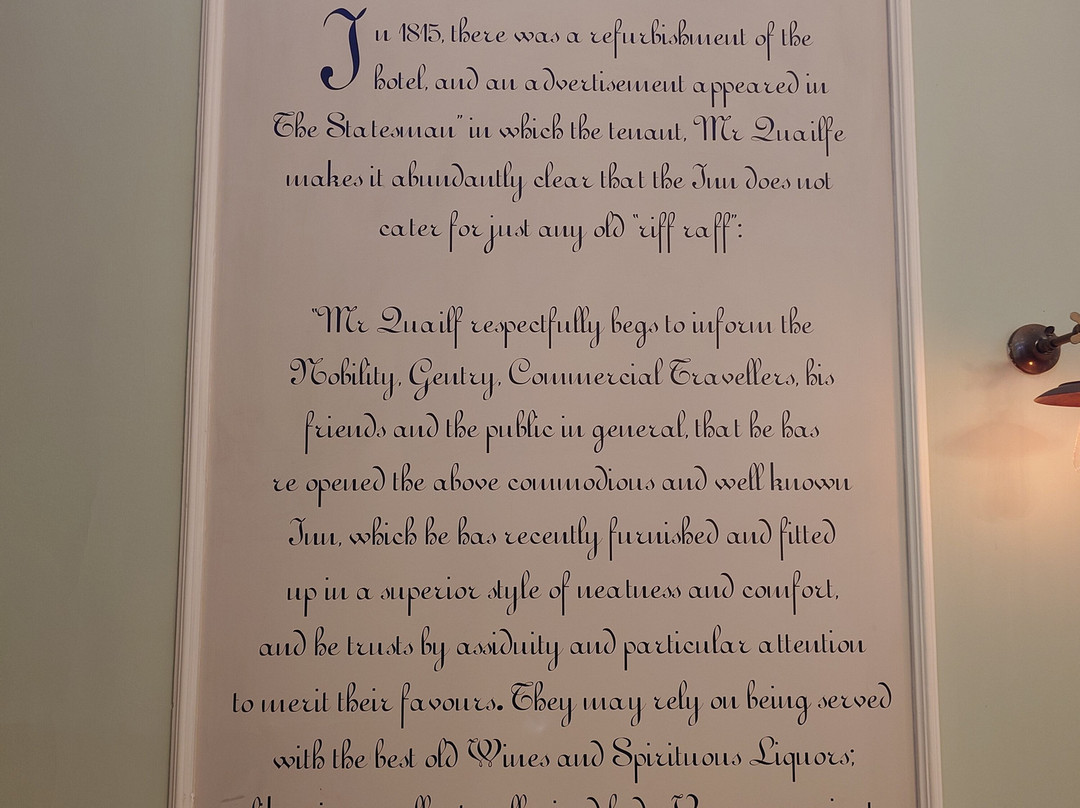 In 1815, there was a refurbishment of the
hotel, and an advertisement appeared in
The Statesman" in which the tenant, Mr Quailfe
makes it abundantly clear that the Inn does not
cater for just any old "riff raff":
"Mr Quailf respectfully begs to inform the
Nobility, Gentry, Commercial Travellers, his
friends and the public in general, that he has
re opened the above commodious and well known
Inn, which he has recently furnished and fitted
up in a superior style of neatness and comfort,
and he trusts by assiduity and particular attention
to merit their favours. They may rely on being served
with the best old Wines and Spirituous Liquors;